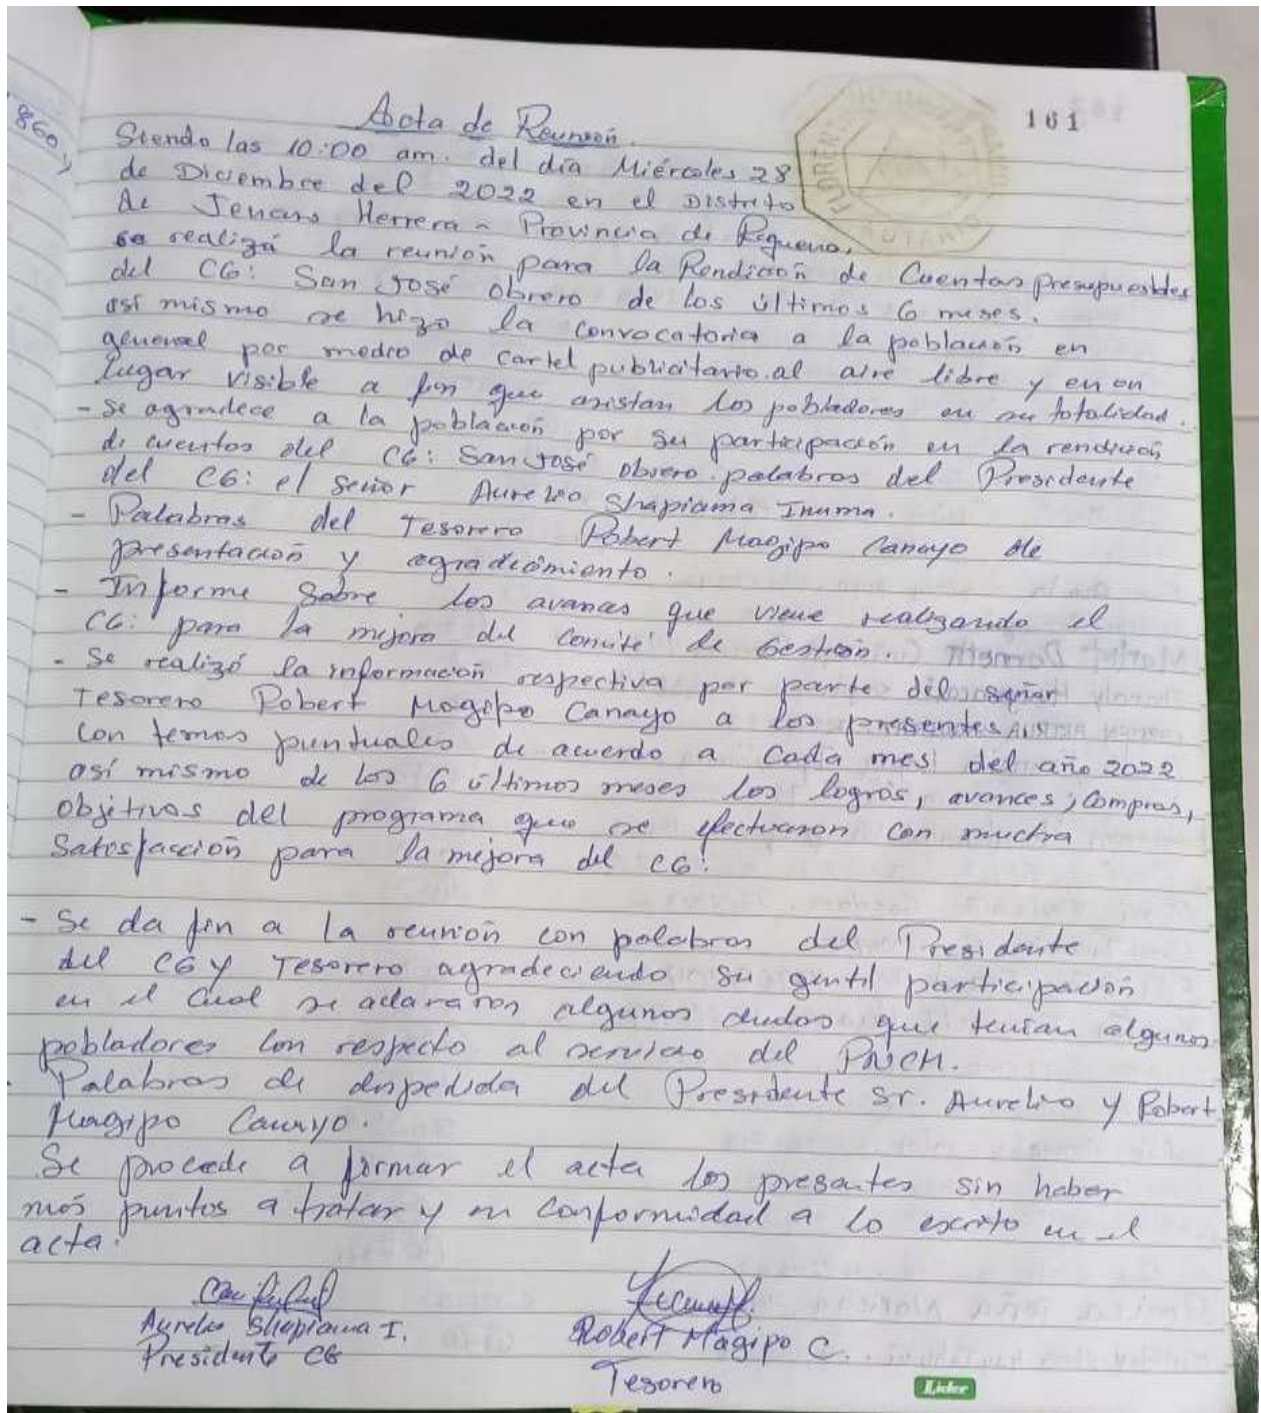 161
860
Acta de Reunión.
Siendo las 10:00 am. del día Miércoles 28
de Diciembre del 2022 en el Distrito
de Jenaro Herrera - Provincia de Requena,
se realizá la reunión para la Rendición de Cuentas presupuestales
del CG: San José obrero de los últimos 6 meses.
así mismo se hizo la convocatoria a la población en
general por medio de cartel publicitario al aire libre y en un
lugar visible a fin que asistan los pobladores en su totalidad.
- Se agradece a la población por su participación en la rendición
de cuentas del CG: San José obrero palabras del Presidente
del CG: el señor Aurelio Shapiama Inuma.
- Palabras del Tesorero Robert Magipo Canayo de
presentación y agradicimiento.
- Informe sobre los avances que viene realizando el
CG: para la mejora del Comité de Gestión.
- Se realizó la información respectiva por parte del señor
Tesorero Robert Magipo Canayo a los presentes
con temas puntuales de acuerdo a cada mes del año 2022
así mismo de los 6 últimos meses los logros, avances, compras,
objetivos del programa que se efectuaron con mucha
Satisfacción para la mejora del CG:
- Se da fin a la reunión con palabras del Presidente
del CG y Tesorero agradeciendo su gentil participación
en el cual se aclararon algunos dudas que tenian algunos
pobladores con respecto al servicio del PNCM.
- Palabras de despedida del Presidente Sr. Aurelio y Robert
Magipo Canayo.
Se procede a firmar el acta los presentes sin haber
más puntos a tratar y en conformidad a lo escrito en el
acta.
Aurelio Shapiama I.
Presidente CG
Robert Magipo C.
Tesorero
Lider